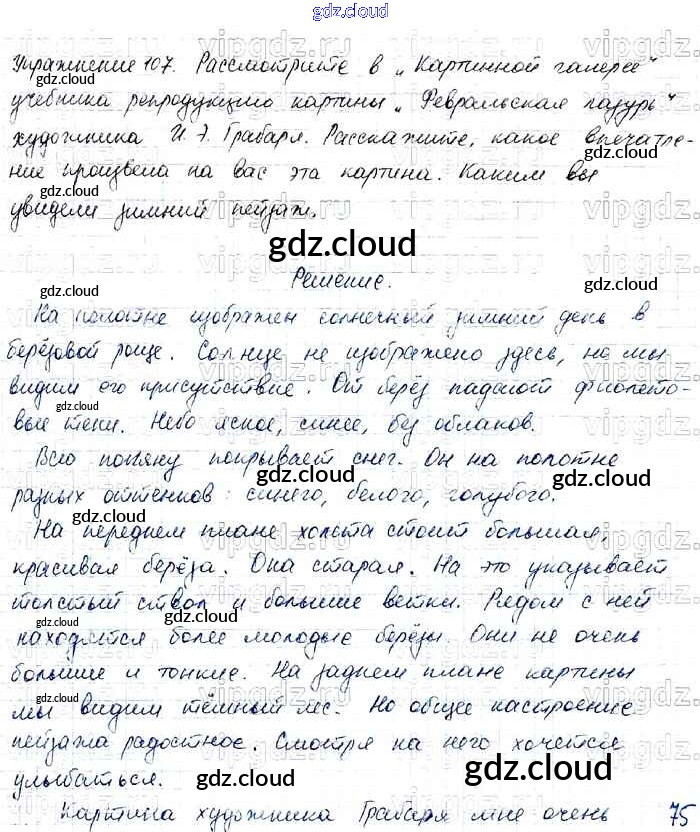 gdz.cloud
Упражнение 107. Рассмотрите в „Картинной галерее“
учебника репродукцию картины „Февральская лазурь“
художника И. Э. Грабаря. Расскажите, какое впечатле-
ние произвела на вас эта картина. Каким вы
увидели зимний пейзаж.
gdz.cloud
Решение.
На полотне изображен солнечный зимний день в
берёзовой роще. Солнце не изображено здесь, но мы
видим его присутствие. От берёз падают фиолето-
вые тени. Небо ясное, синее, без облаков.
Всю поляну покрывает снег. Он на полотне
разных оттенков: синего, белого, голубого.
На переднем плане холста стоит большая,
красивая берёза. Она старая. На это указывает
толстый ствол и большие ветки. Рядом с ней
находятся более молодые берёзы. Они не очень
большие и тонкие. На заднем плане картины
мы видим тёмный лес. Но общее настроение
пейзажа радостное. Смотря на него хочется
улыбаться.
Картина художника Грабаря мне очень 75